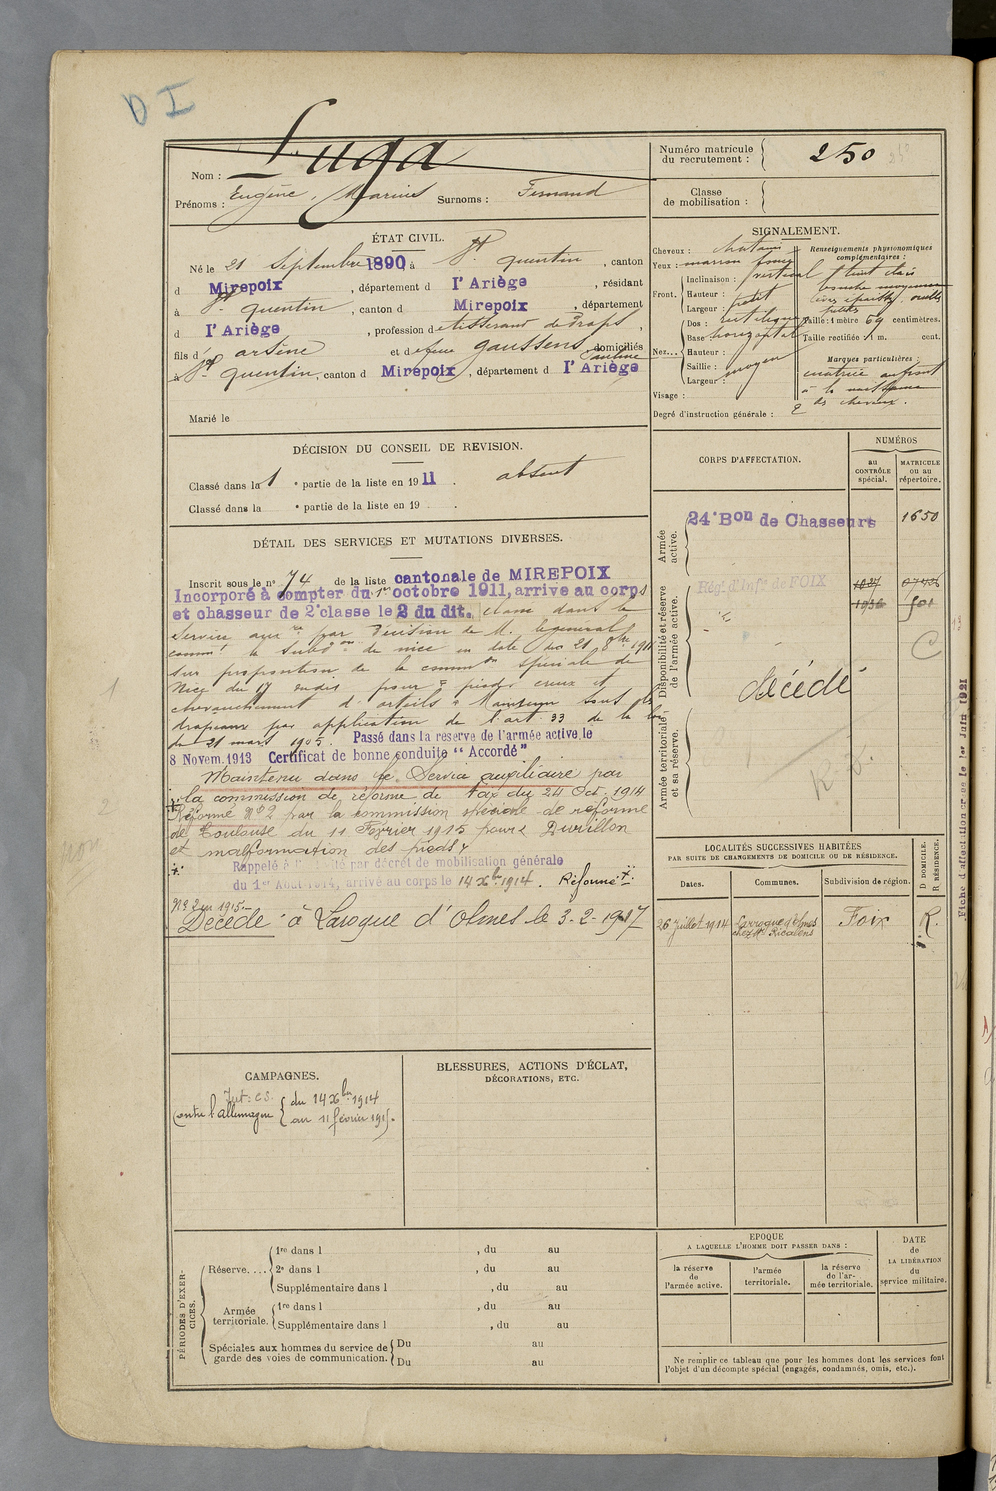 D I
Nom : Luga
Prénoms : Eugène, Marius Surnoms : Fernand
Numéro matricule du recrutement : 250
Classe de mobilisation :
ÉTAT CIVIL.
Né le 21 Septembre 1890, à St quentin, canton
d Mirepoix, département d l'Ariège, résidant
à St quentin, canton d Mirepoix, département
d l'Ariège, profession de tisserand de draps,
fils d' arsène et de feue gaussens Pauline, domiciliés
à St quentin, canton d Mirepoix, département d l'Ariège
Marié le
SIGNALEMENT.
Cheveux : chatains
Yeux : marron foncé
Front. Inclinaison : vertical
Hauteur : petit
Largeur :
Nez... Dos : rectiligne
Base : horizontal
Hauteur :
Saillie : moyen
Largeur :
Visage :
Renseignements physionomiques complémentaires :
teint clair
bouche moyenne
petites
Taille : 1 mètre 69 centimètres.
Taille rectifiée : 1 m. cent.
Marques particulières :
cicatrice au front
à la naissance
des cheveux.
Degré d'instruction générale : 2
DÉCISION DU CONSEIL DE REVISION.
Classé dans la 1 e partie de la liste en 1911. absent
Classé dans la e partie de la liste en 19 .
DÉTAIL DES SERVICES ET MUTATIONS DIVERSES.
Inscrit sous le n° 74 de la liste cantonale de MIREPOIX
Incorporé à compter du 1er octobre 1911, arrive au corps
et chasseur de 2e classe le 2 du dit. classé dans le
service auxre par Décision de M. le général
commt la Subdon de nice en date du 21 8bre 1911
sur proposition de la common spéciale de
Nice du 17 pour pieds creux et
chevauchement d'orteils Maintenu sous les
drapeaux par application de l'art 33 de la loi
du 21 mars 1905. Passé dans la réserve de l'armée active le
8 Novem. 1913 Certificat de bonne conduite "Accordé"
Maintenu dans le Service auxiliaire par
la commission de réforme de Fax du 24 Oct. 1914
Réformé N°2 par la commission spéciale de réforme
de Toulouse du 11 Février 1915 pour Durillon
et malformation des pieds
Rappelé à l'activité par décret de mobilisation générale
du 1er Août 1914, arrivé au corps le 14 Xbre 1914. Réformé
N° 2 en 1915.
Décédé à Laroque d'Olmes le 3-2-1917
CORPS D'AFFECTATION.
NUMÉROS
au CONTRÔLE spécial.
MATRICULE ou au répertoire.
Armée active.
24e Bon de Chasseurs 1650
Disponibilité et réserve de l'armée active.
Rég. d'Infie de FOIX
501
C
décédé
Armée territoriale et sa réserve.
LOCALITÉS SUCCESSIVES HABITÉES
PAR SUITE DE CHANGEMENTS DE DOMICILE OU DE RÉSIDENCE.
Dates. Communes. Subdivision de région. D DOMICILE. R RÉSIDENCE.
26 juillet 1914 Larroque d'olmes Foix R.
chez Mr Ricalens
Fiche d'affectation créée le 1er Juin 1921
CAMPAGNES.
Int: C.S.
Contre l'allemagne du 14 Xbre 1914
au 11 février 1915.
BLESSURES, ACTIONS D'ÉCLAT,
DÉCORATIONS, ETC.
PÉRIODES D'EXERCICES.
Réserve.... 1re dans l , du au
2e dans l , du au
Supplémentaire dans l , du au
Armée territoriale. 1re dans l , du au
Supplémentaire dans l , du au
Spéciales aux hommes du service de garde des voies de communication. Du au
Du au
EPOQUE
A LAQUELLE L'HOMME DOIT PASSER DANS :
la réserve de l'armée active.
l'armée territoriale.
la réserve de l'armée territoriale.
DATE de LA LIBÉRATION du service militaire.
Ne remplir ce tableau que pour les hommes dont les services font
l'objet d'un décompte spécial (engagés, condamnés, omis, etc.).